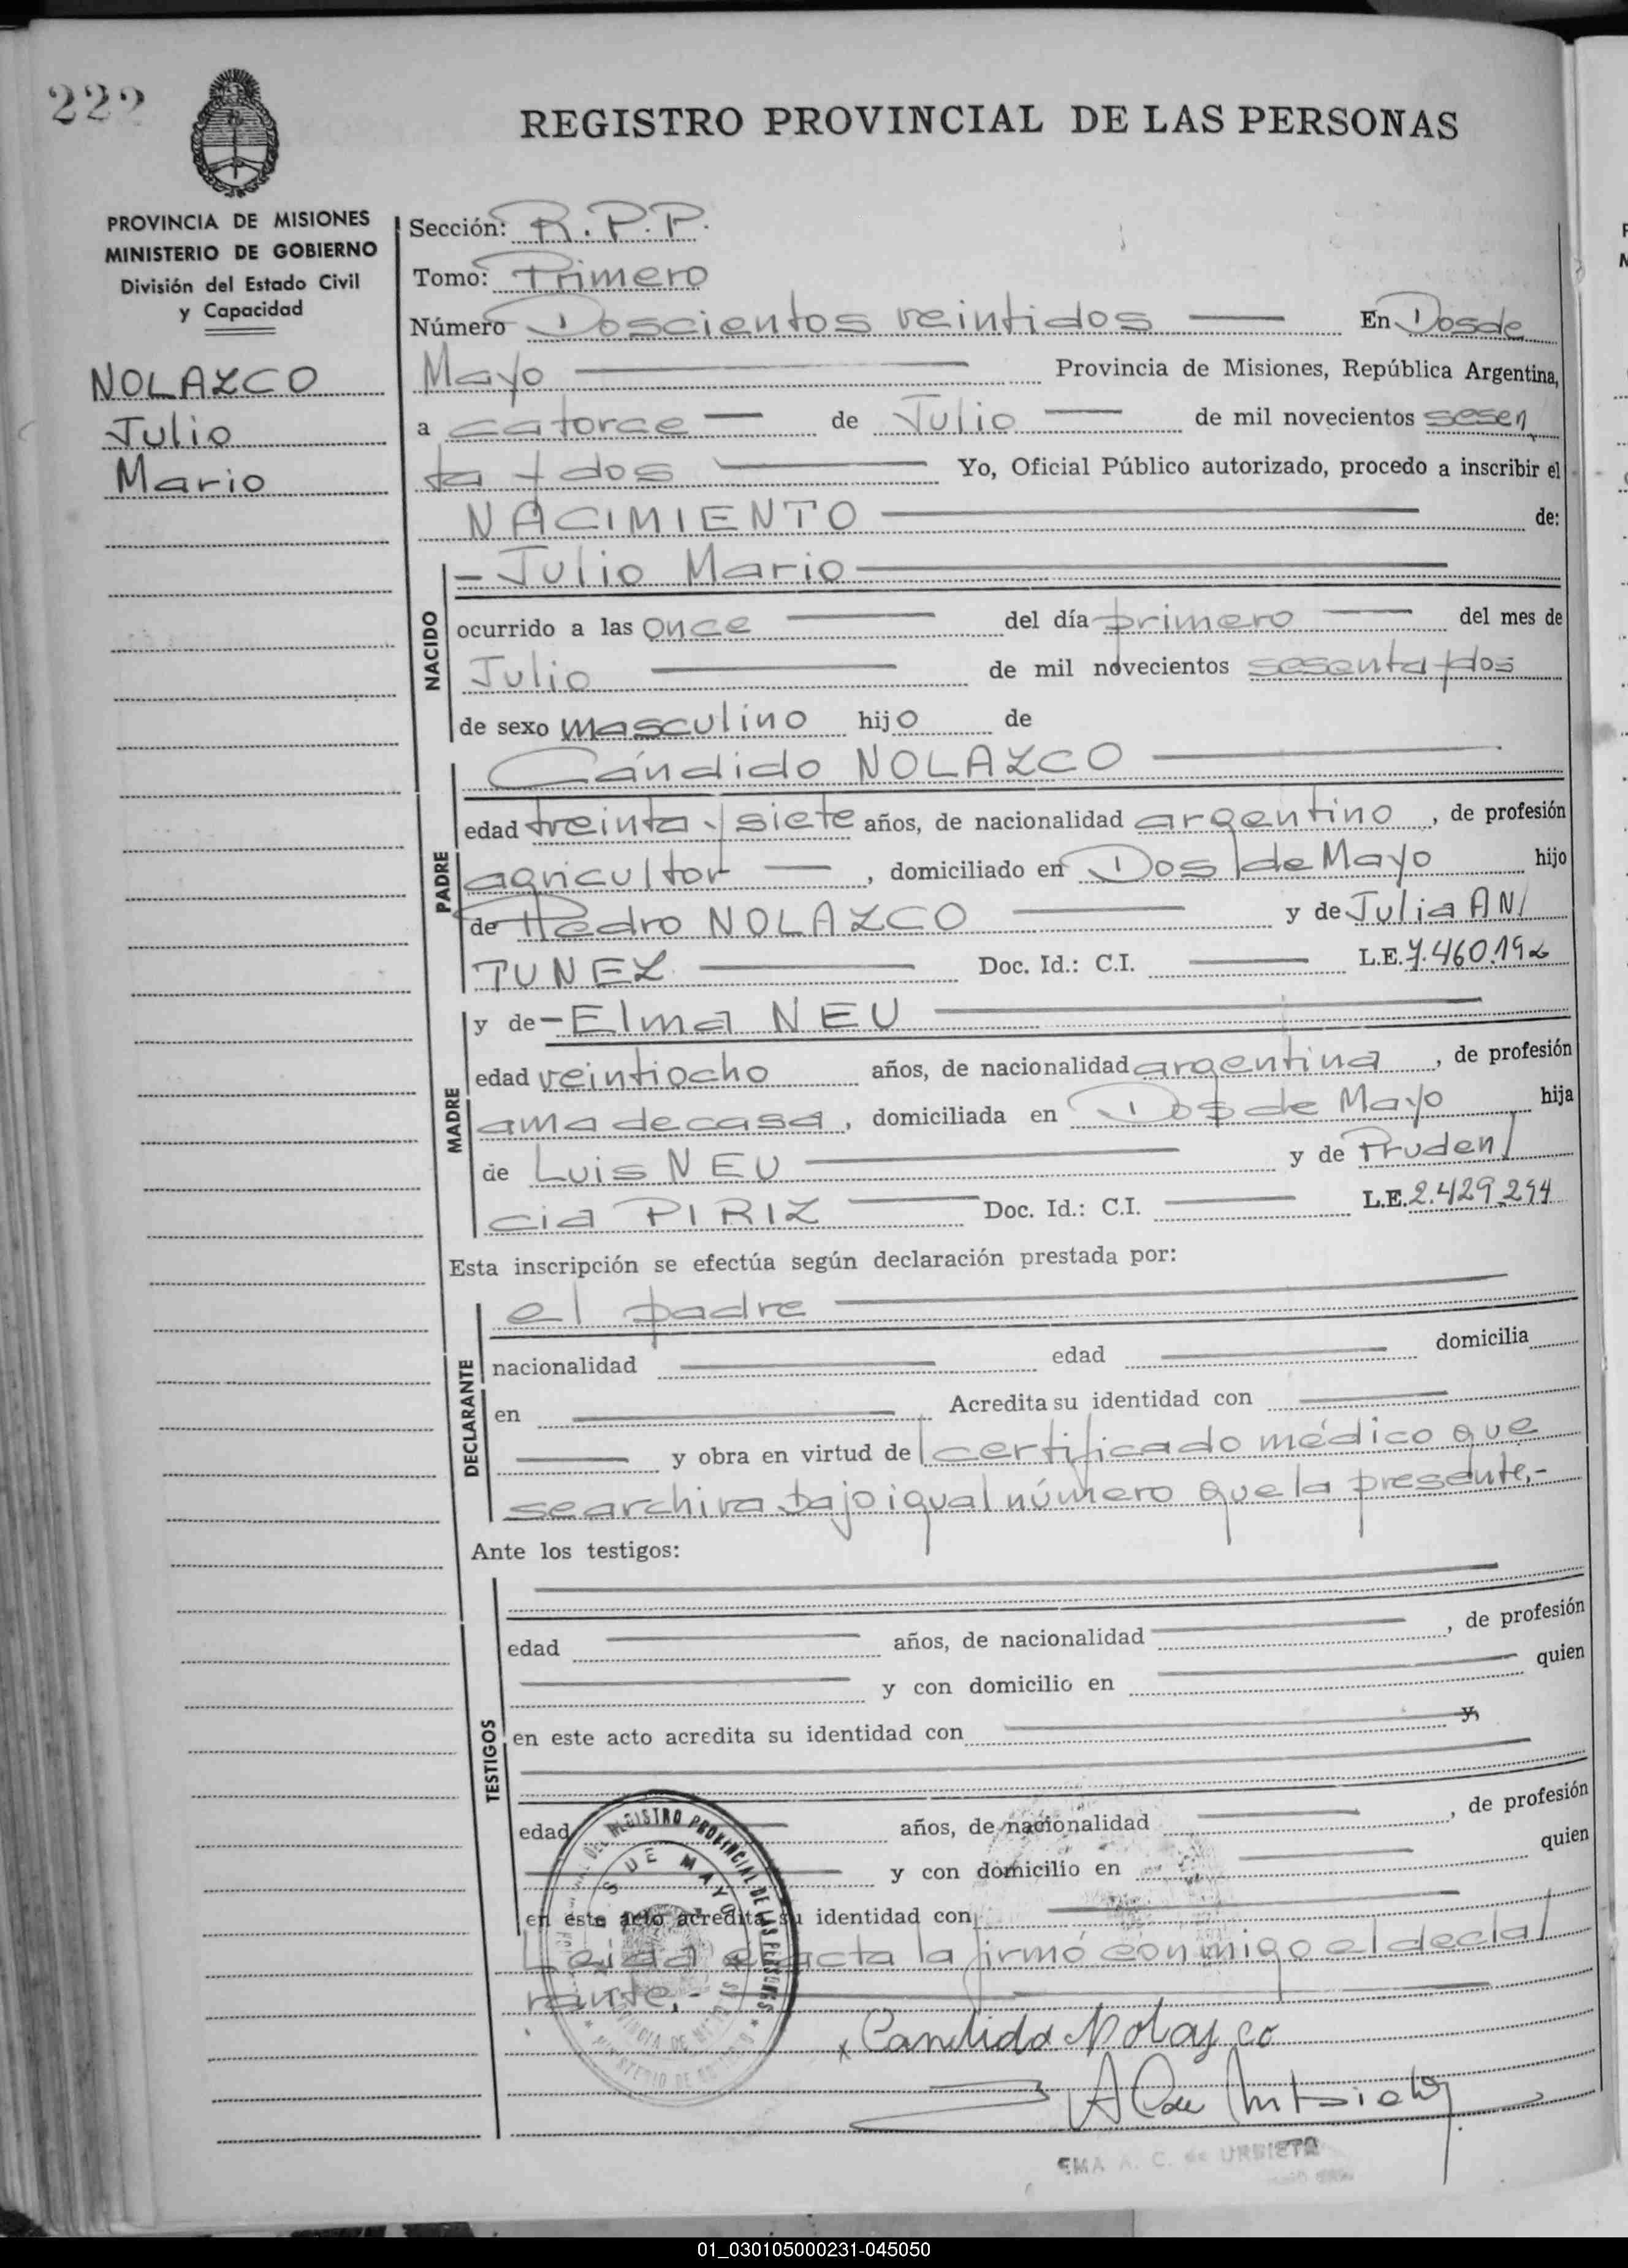 222
REGISTRO PROVINCIAL DE LAS PERSONAS
PROVINCIA DE MISIONES
MINISTERIO DE GOBIERNO
División del Estado Civil
y Capacidad
NOLAZCO
Julio
Mario
Sección: R.P.P.
Tomo: Primero
Número Doscientos veintidos En Dos de
Mayo Provincia de Misiones, República Argentina,
a catorce de Julio de mil novecientos sesen
ta y dos Yo, Oficial Público autorizado, procedo a inscribir el
NACIMIENTO de:
NACIDO
- Julio Mario
ocurrido a las once del día primero del mes de
Julio de mil novecientos sesenta y dos
de sexo masculino hijo de
PADRE
Cándido NOLAZCO
edad treinta y siete años, de nacionalidad argentino, de profesión
agricultor, domiciliado en Dos de Mayo hijo
de Pedro NOLAZCO y de Julia AN/
TUNEZ Doc. Id.: C.I. L.E. 7.460.192
MADRE
y de - Elma NEU
edad veintiocho años, de nacionalidad argentina, de profesión
ama de casa, domiciliada en Dos de Mayo hija
de Luis NEU y de Pruden/
cia PIRIZ Doc. Id.: C.I. L.E. 2.429.294
Esta inscripción se efectúa según declaración prestada por:
DECLARANTE
el padre
nacionalidad edad domicilia
en Acredita su identidad con
y obra en virtud de certificado médico que
se archiva bajo igual número que la presente.-
Ante los testigos:
TESTIGOS
edad años, de nacionalidad , de profesión
y con domicilio en quien
en este acto acredita su identidad con y,
edad años, de nacionalidad , de profesión
y con domicilio en quien
en este acto acredita su identidad con
Leída el acta la firmó conmigo el decla/
rante.-
REGISTRO PROVINCIAL DE LAS PERSONAS
DE MAYO
x Candido Nolasco
EMA A. C. de URBIETA
01_030105000231-045050